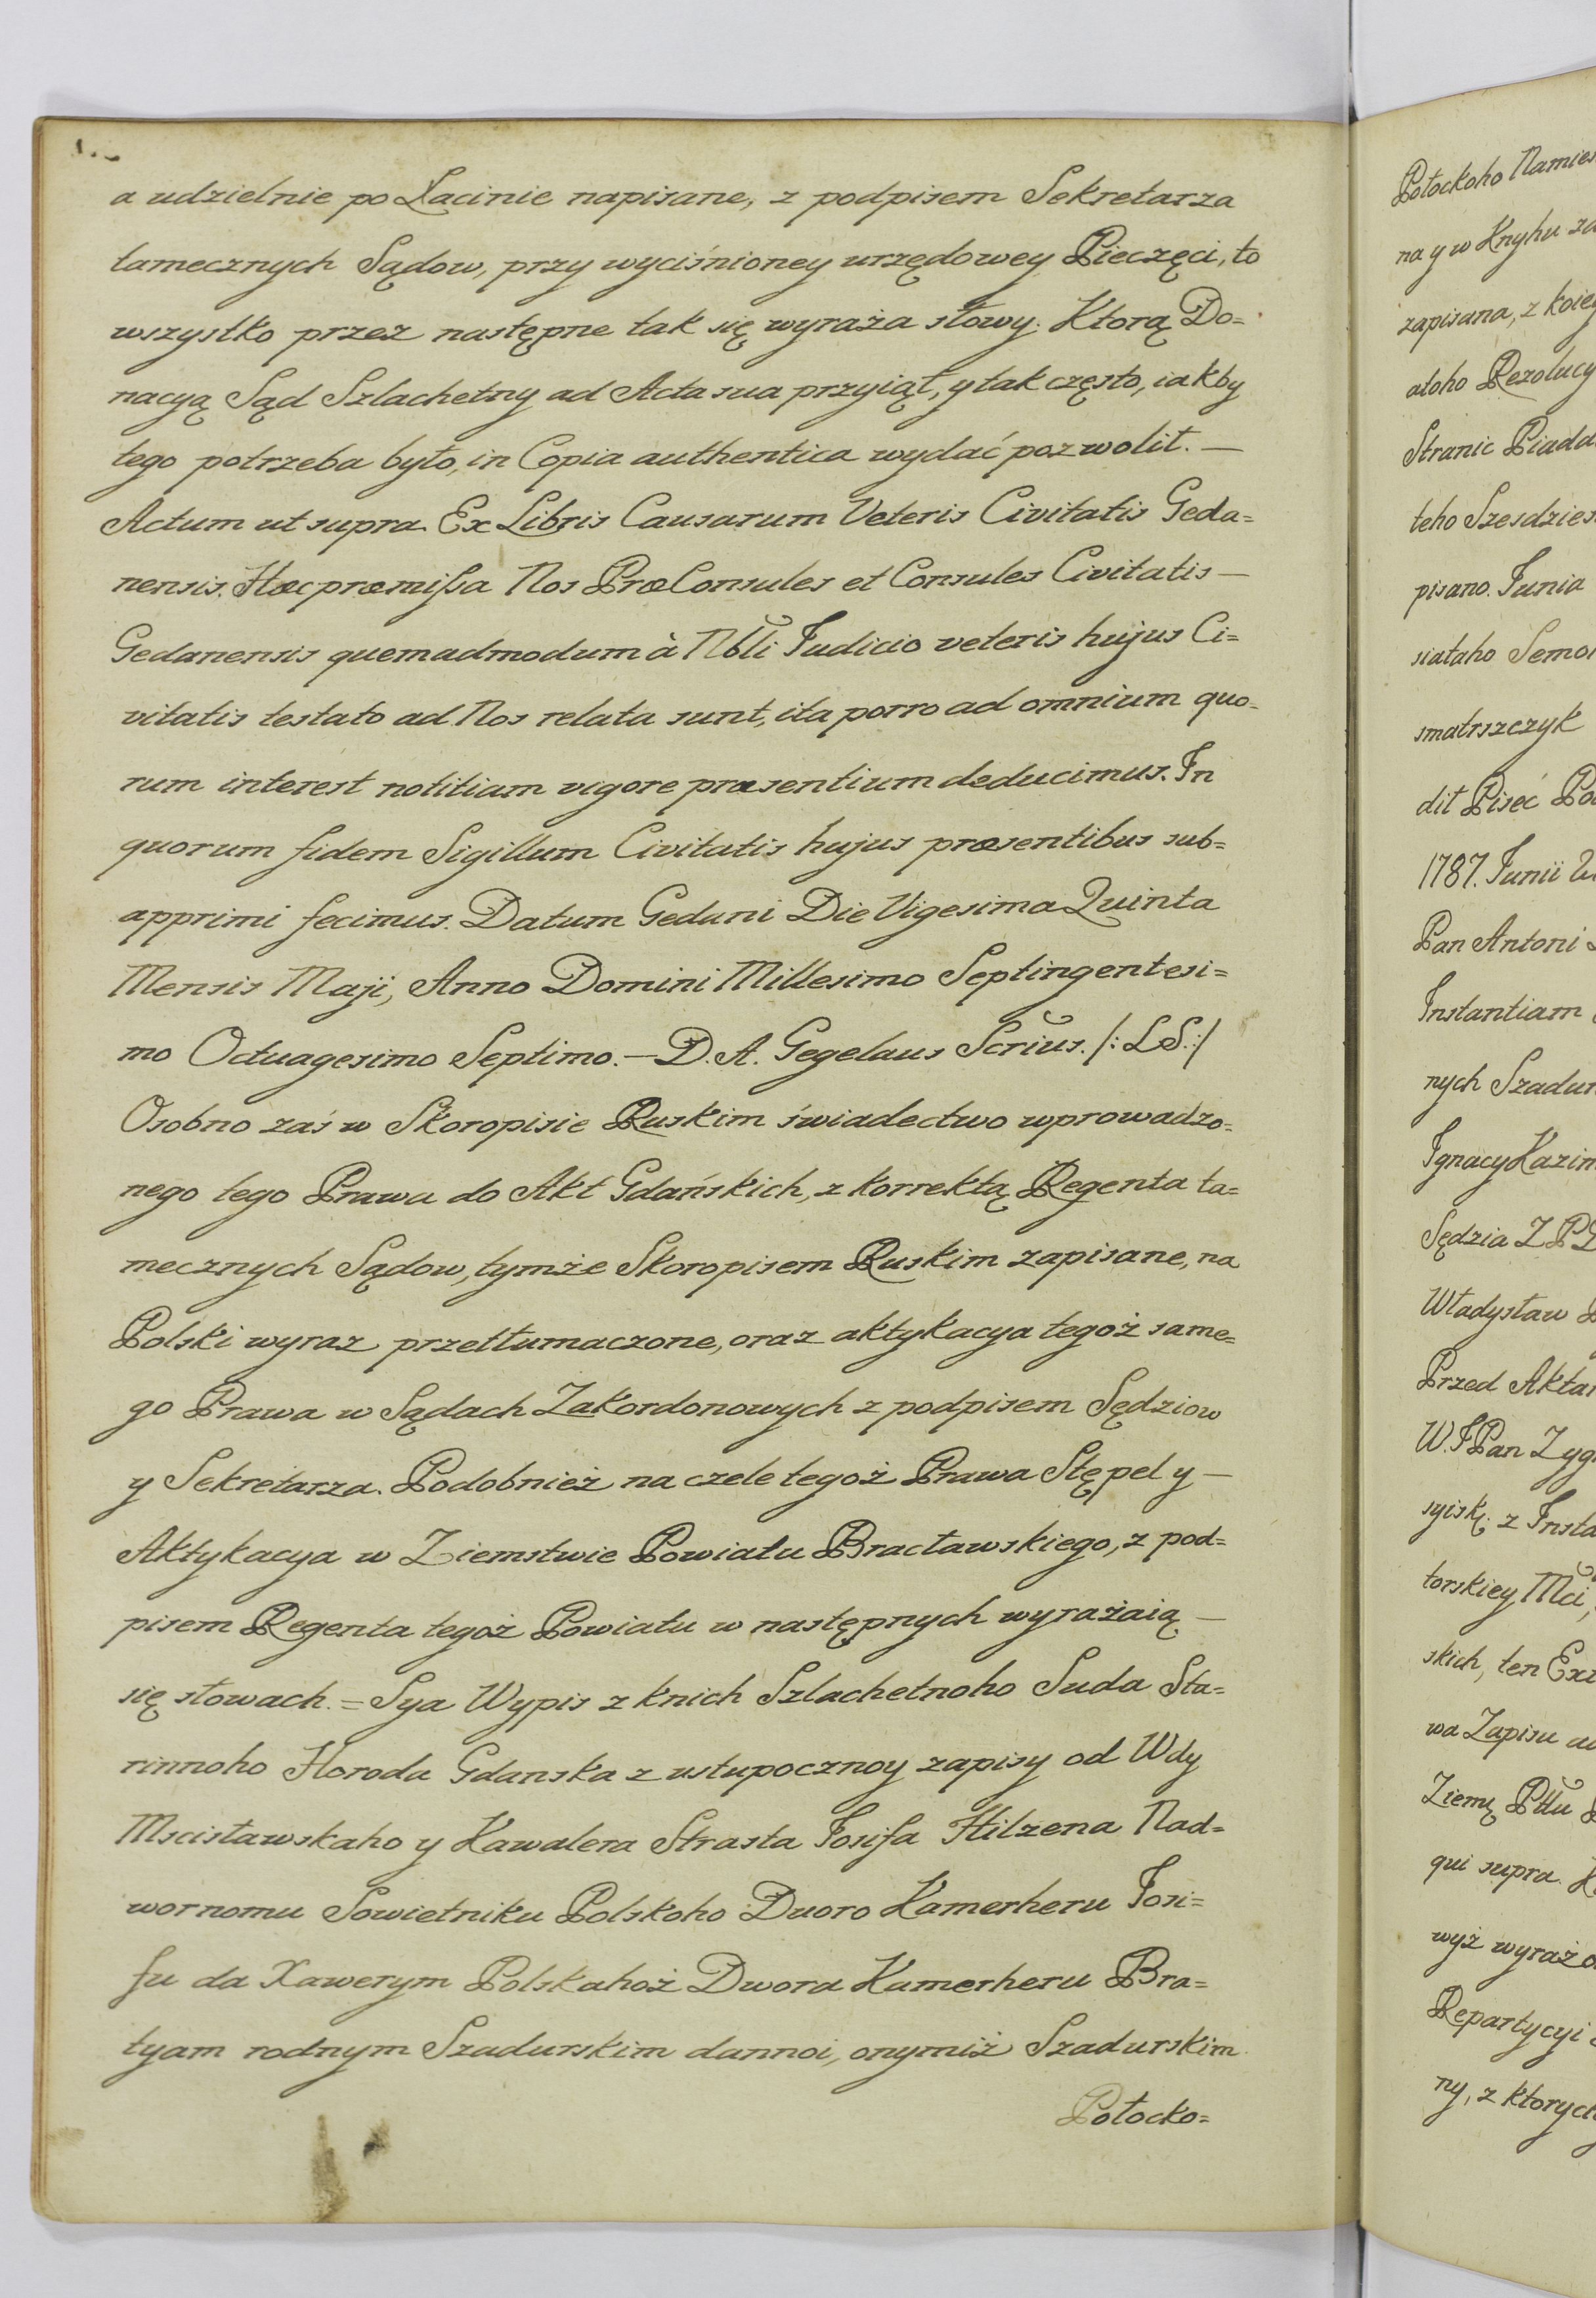 a udzielnie po Łacinie napisane, z podpisem Sekretarza
tamecznych Sądow, przy wyciśnioney urzędowey Pieczęci, to
wszystko przez następne tak się wyraża słowy. Ktorą Do=
nacyą Sąd Szlachetny ad Acta sua przyiął, y tak często, iakby
tego potrzeba było, in Copia authentica wydać pozwolił. —
Actum ut supra. Ex Libris Causarum Veteris Civitatis Geda=
nensis. Hæc præmissa Nos PræConsules et Consules Civitatis —
Gedanensis quemadmodum à Nbli Judicio veteris hujus Ci=
vitatis testato ad Nos relata sunt, ita porro ad omnium quo=
rum interest notitiam vigore præsentium deducimus. In
quorum fidem Sigillum Civitatis hujus præsentibus sub=
apprimi fecimus. Datum Gedani Die Vigesima Quinta
Mensis Maji, Anno Domini Millesimo Septingentesi=
mo Octuagesimo Septimo. — D. A. Gegelaus Scrius. /: LS. :/
Osobno zaś w Skoropisie Ruskim świadectwo wprowadzo=
nego tego Prawa do Akt Gdańskich, z korrektą Regenta ta=
mecznych Sądow, tymże Skoropisem Ruskim zapisane, na
Polski wyraz przetłumaczone, oraz aktykacya tegoż same=
go Prawa w Sądach Zakordonowych z podpisem Sędziow
y Sekretarza. Podobnież na czele tegoż Prawa Stępel y —
Aktykacya w Ziemstwie Powiatu Bracławskiego, z pod=
pisem Regenta tegoż Powiatu w następnych wyrażaią —
się słowach. = Sya Wypis z knich Szlachetnoho Suda Sta=
rinnoho Horoda Gdanska z ustupocznoy zapisy od Wdy
Mscisławskaho y Kawalera Strasta Josifa Hilzena Nad=
wornomu Sowietniku Polskoho Dworo Kamerheru Josi=
fu da Xawerym Polskahoż Dwora Kamerheru Bra=
tyam rodnym Szadurskim dannoi, onymiż Szadurskim
Połocko=
Połockoho
na y w Knyhu
zapisana, z
ałoho
Stranic
teho
pisano. Junia
siataho
smatrszczyk
dit Piseć
1787. Junii
Pan Antoni
Instantiam
nych
Ignacy
Sędzia
Władysław
Przed
W. JPan
z
torskiey Mci,
skich, ten
wa Zapisu
Ziemę Pttu
qui supra.
wyż
Repartycyi
ny, z